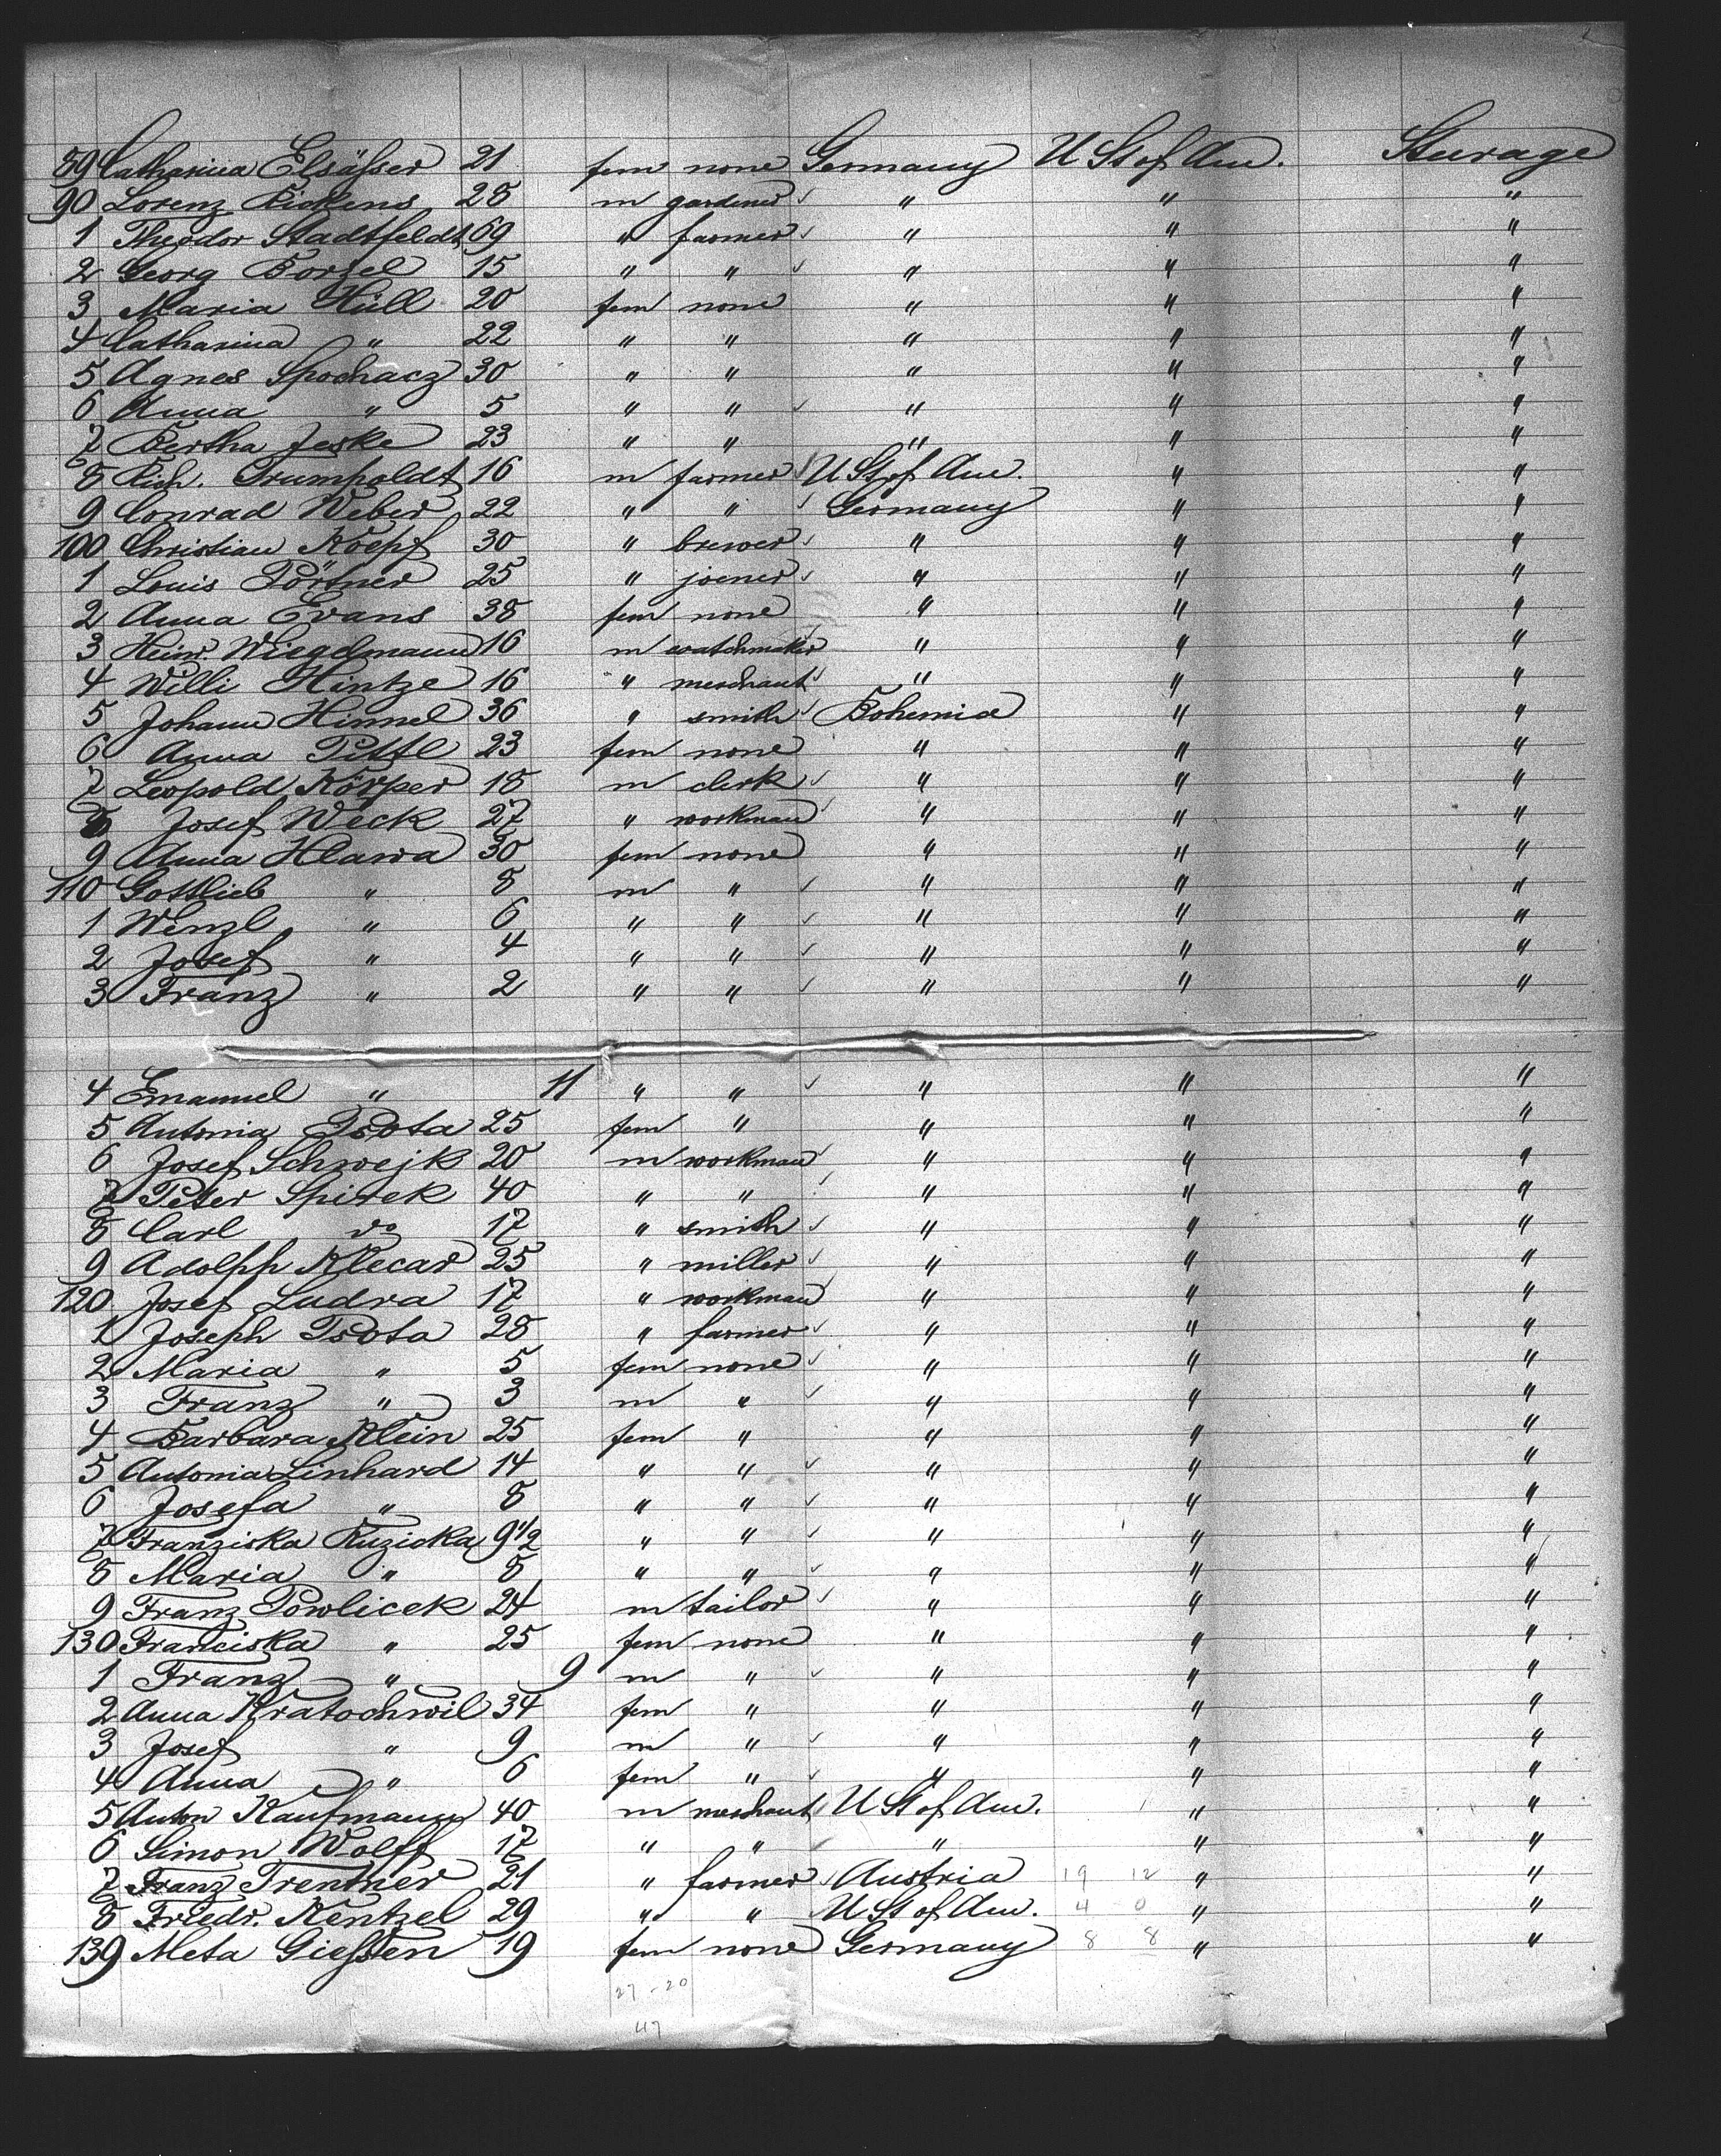 89 Catharina Elsäßer 21 fem none Germany U St of Am. Steerage
90 Lorenz Rickens 28 m gardener " " "
1 Theodor Stadtfeldt 69 " farmer " " "
2 Georg Borsel 15 " " " " "
3 Maria Hüll 20 fem none " " "
4 Catharina " 22 " " " " "
5 Agnes Spochacz 30 " " " " "
6 Anna " 5 " " " " "
7 Bertha Jeske 23 " " " " "
8 Rich. Trumpholdt 16 m farmer U St of Am. " "
9 Conrad Weber 22 " " Germany " "
100 Christian Koepf 30 " brewer " " "
1 Louis Pörtner 25 " joener " " "
2 Anna Evans 38 fem none " " "
3 Heinr Wiegdmann 16 m watchmaker " " "
4 Willi Hintze 16 " merchant " " "
5 Johann Himmel 36 " smith Bohemia " "
6 Anna Pittl 23 fem none " " "
7 Leopold Körper 18 m clerk " " "
8 Josef Weck 27 " workman " " "
9 Anna Hlawa 30 fem none " " "
110 Gottlieb " 8 m " " " "
1 Wenzl " 6 " " " " "
2 Josef " 4 " " " " "
3 Franz " 2 " " " " "
4 Emanuel " 11 " " " " "
5 Antonia Psota 25 fem " " " "
6 Josef Schwejk 20 m workman " " "
7 Peter Spirek 40 " " " " "
8 Carl do 17 " smith " " "
9 Adolph Klecar 25 " miller " " "
120 Josef Ludra 17 " workman " " "
1 Joseph Psota 28 " farmer " " "
2 Maria " 5 fem none " " "
3 Franz " 3 m " " " "
4 Barbara Klein 25 fem " " " "
5 Antonia Linhard 14 " " " " "
6 Josefa " 8 " " " " "
7 Franziska Ruzicka 9 1/2 " " " " "
8 Maria " 8 " " " " "
9 Franz Powlicek 24 m tailor " " "
130 Franciska " 25 fem none " " "
1 Franz " 9 m " " " "
2 Anna Kratochwil 34 fem " " " "
3 Josef " 9 m " " " "
4 Anna " 6 fem " " " "
5 Anton Kaufmann 40 m merchant U St of Am. " "
6 Simon Wolff 17 " " " " "
7 Franz Trentner 21 " farmer Austria 19 12 " "
8 Friedr. Kentzel 29 " " U St of Am. 4 0 " "
139 Meta Gießen 19 fem none Germany 8 8 " "
27 - 20
47